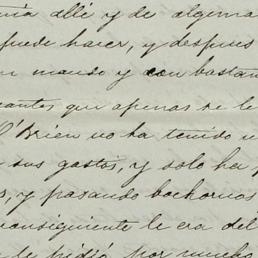 allí y de alguna
puede hacer, y despues
mando y con bastan
cantos que apenas se le
O'Brien no ha tenido
sus gastos, y solo ha
y pasando bochornos
consiguiente le era del
le pidió por mucho